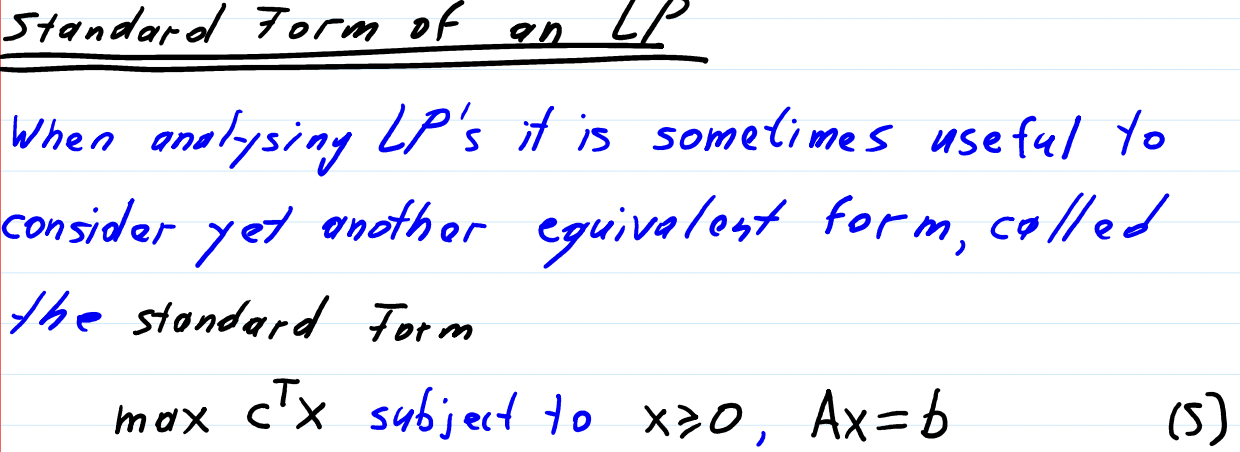 Standard Form of an LP
When analysing LP's it is sometimes useful to
consider yet another equivalent form, called
the standard Form
max cᵀx subject to x⩾0, Ax=b (S)